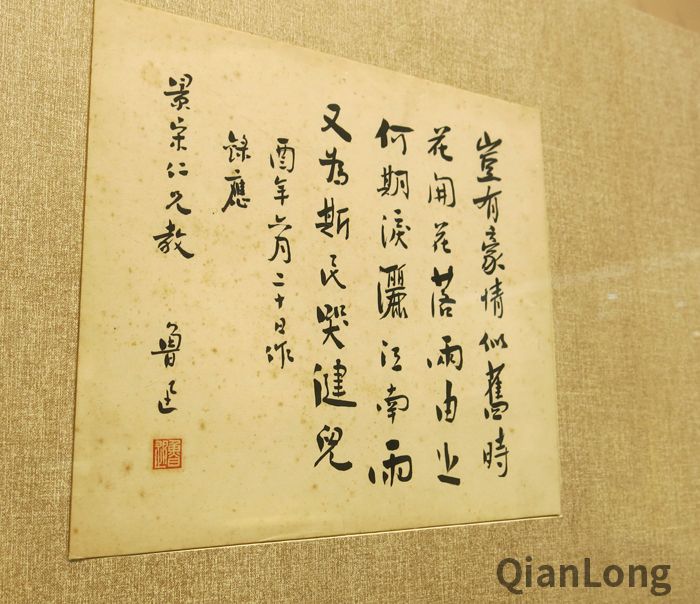 豈有豪情似舊時
花開花落兩由之
何期淚灑江南雨
又為斯民哭健兒
酉年六月二十日作
錄應
景宋仁兄教
魯迅
魯迅
QianLong